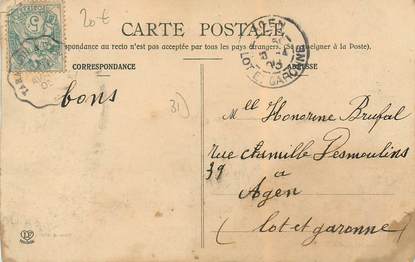 20€
CARTE POSTALE
La Correspondance au recto n'est pas acceptée par tous les pays étrangers. (Se renseigner à la Poste).
CORRESPONDANCE
ADRESSE
AGEN
LOT-ET-GARONNE
5
bons
31)
Mlle Honorine Brufal
rue Camille Desmoulins
39
à
Agen
(Lot et garonne